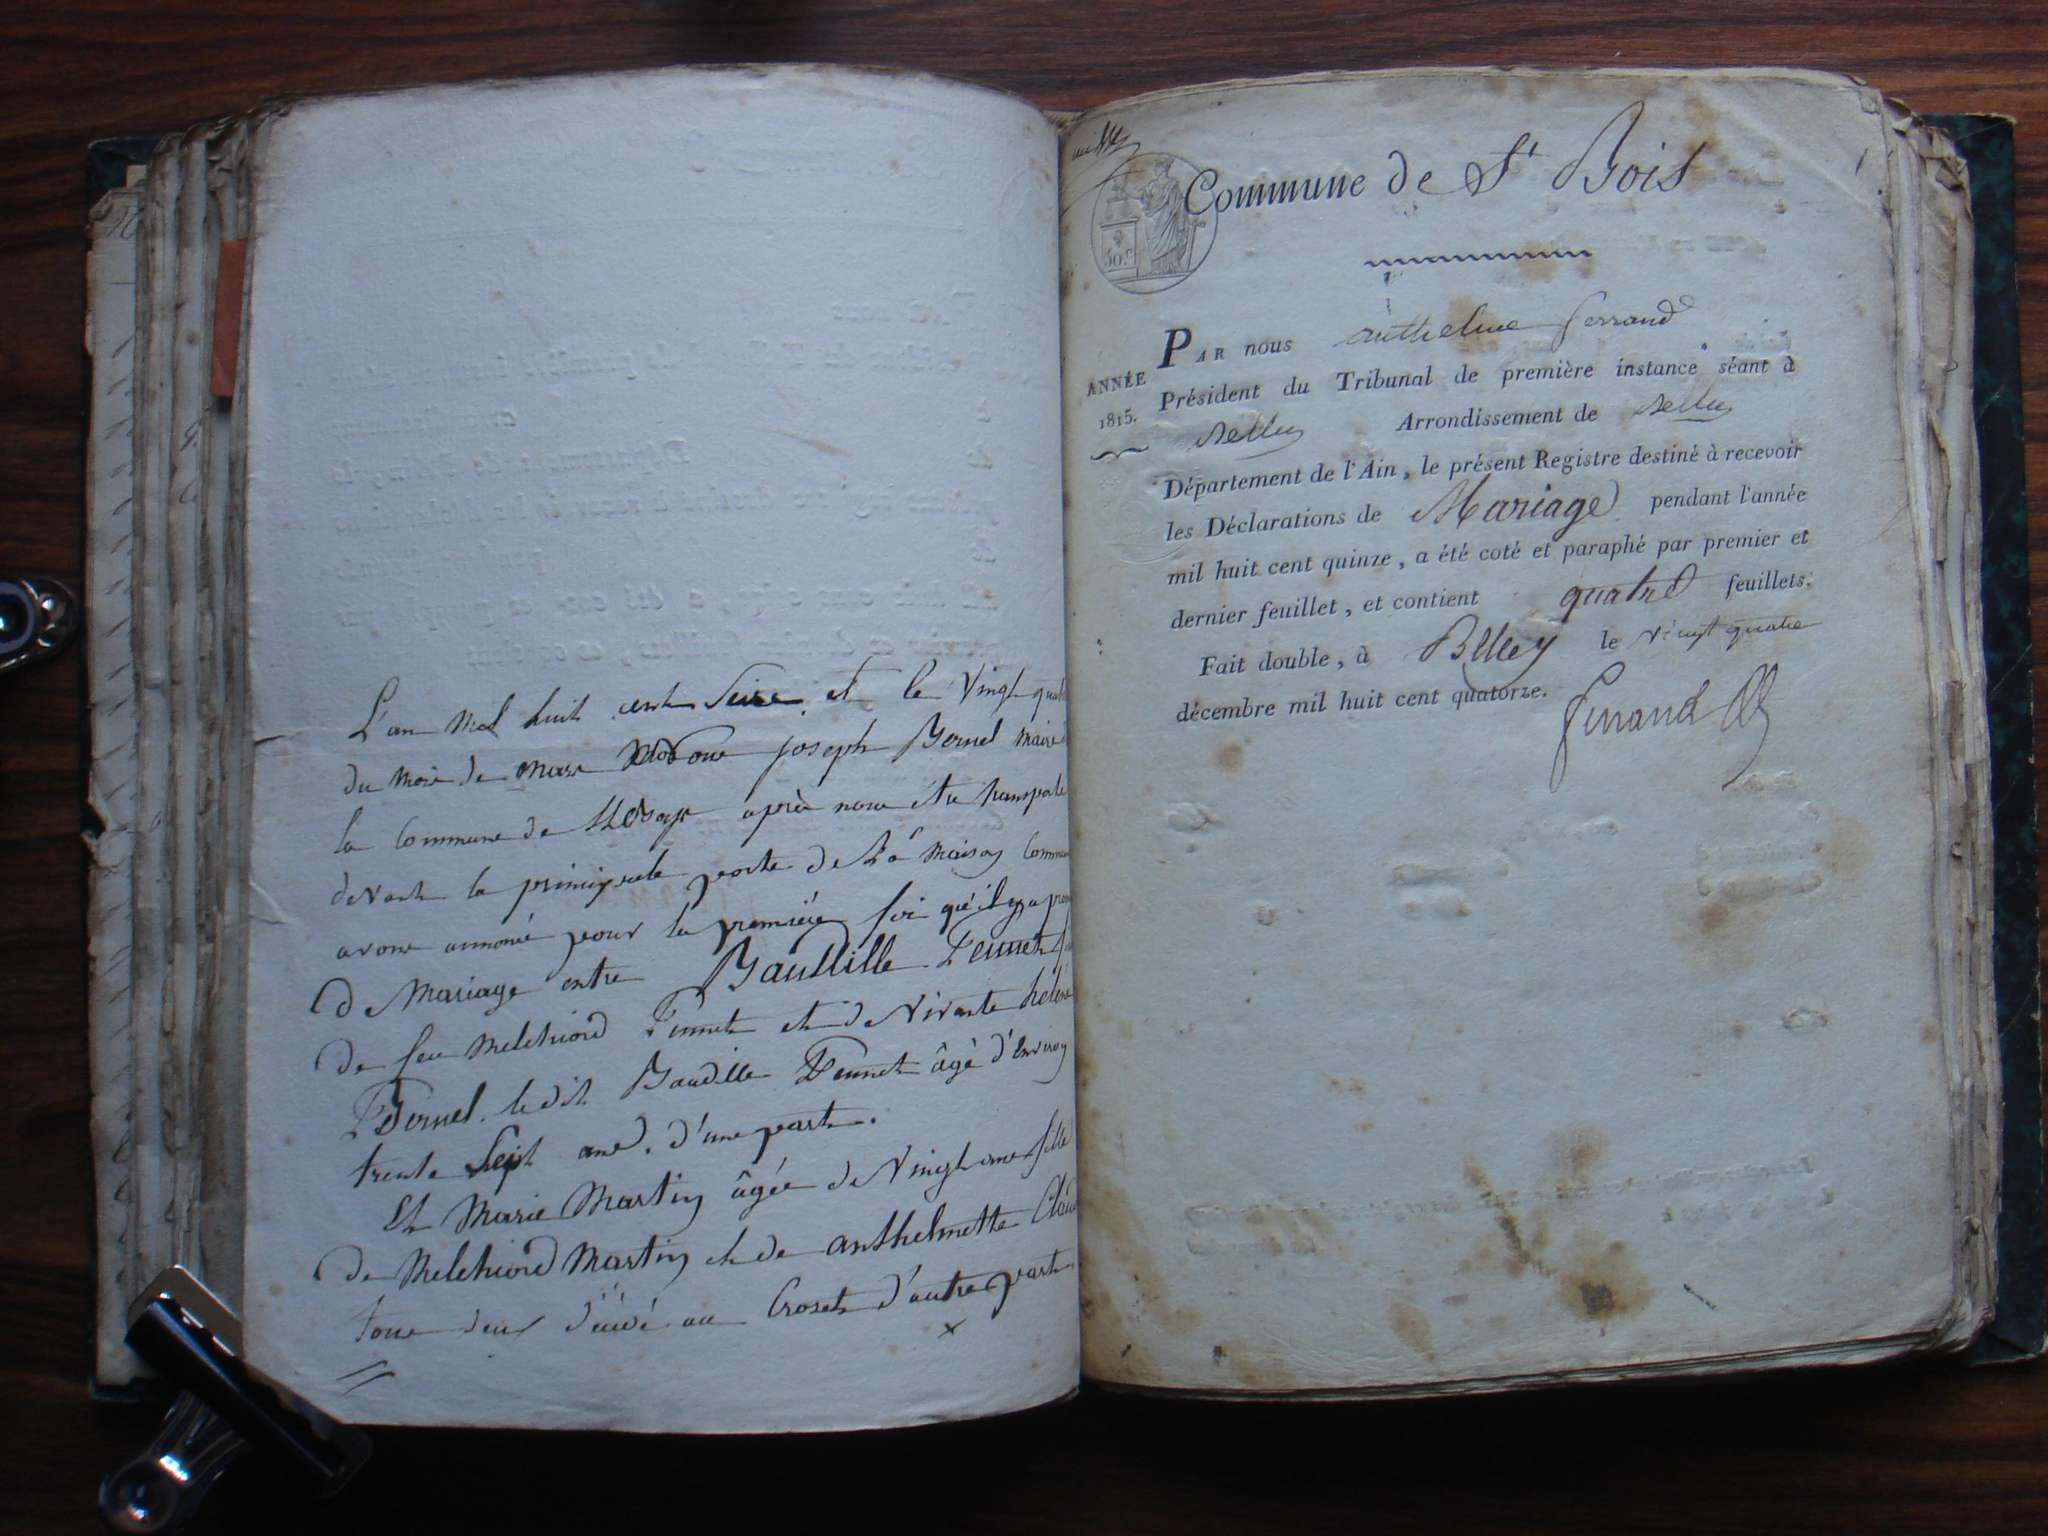 L'an Mil huit cent Seize et le Vingt quat
du mois de mars Nous joseph Bernel maire d
la Commune de St Boys après nous être transporté
devant la principale porte de La maison Commu
avons annoncé pour la première foi qu'il y a prom
de Mariage entre Baudille Pennet
de feu Melchiord Pennet et de Vivante hélène
Bernel. ledit Baudille Pennet âgé d'Environ
trente Sept ans. d'une part.
Et Marie Martin âgée de Vingt ans fille
de Melchiord Martin et de anthelmette
tous deux au Croset d'autre part.
Commune de St Bois
50.c
ANNÉE
1815.
PAR nous anthelme ferrand
Président du Tribunal de première instance séant à
Belley Arrondissement de Belley
Département de l'Ain, le présent Registre destiné à recevoir
les Déclarations de Mariage pendant l'année
mil huit cent quinze, a été coté et paraphé par premier et
dernier feuillet, et contient quatre feuillets.
Fait double, à Belley le vingt quatre
décembre mil huit cent quatorze.
Ferrand